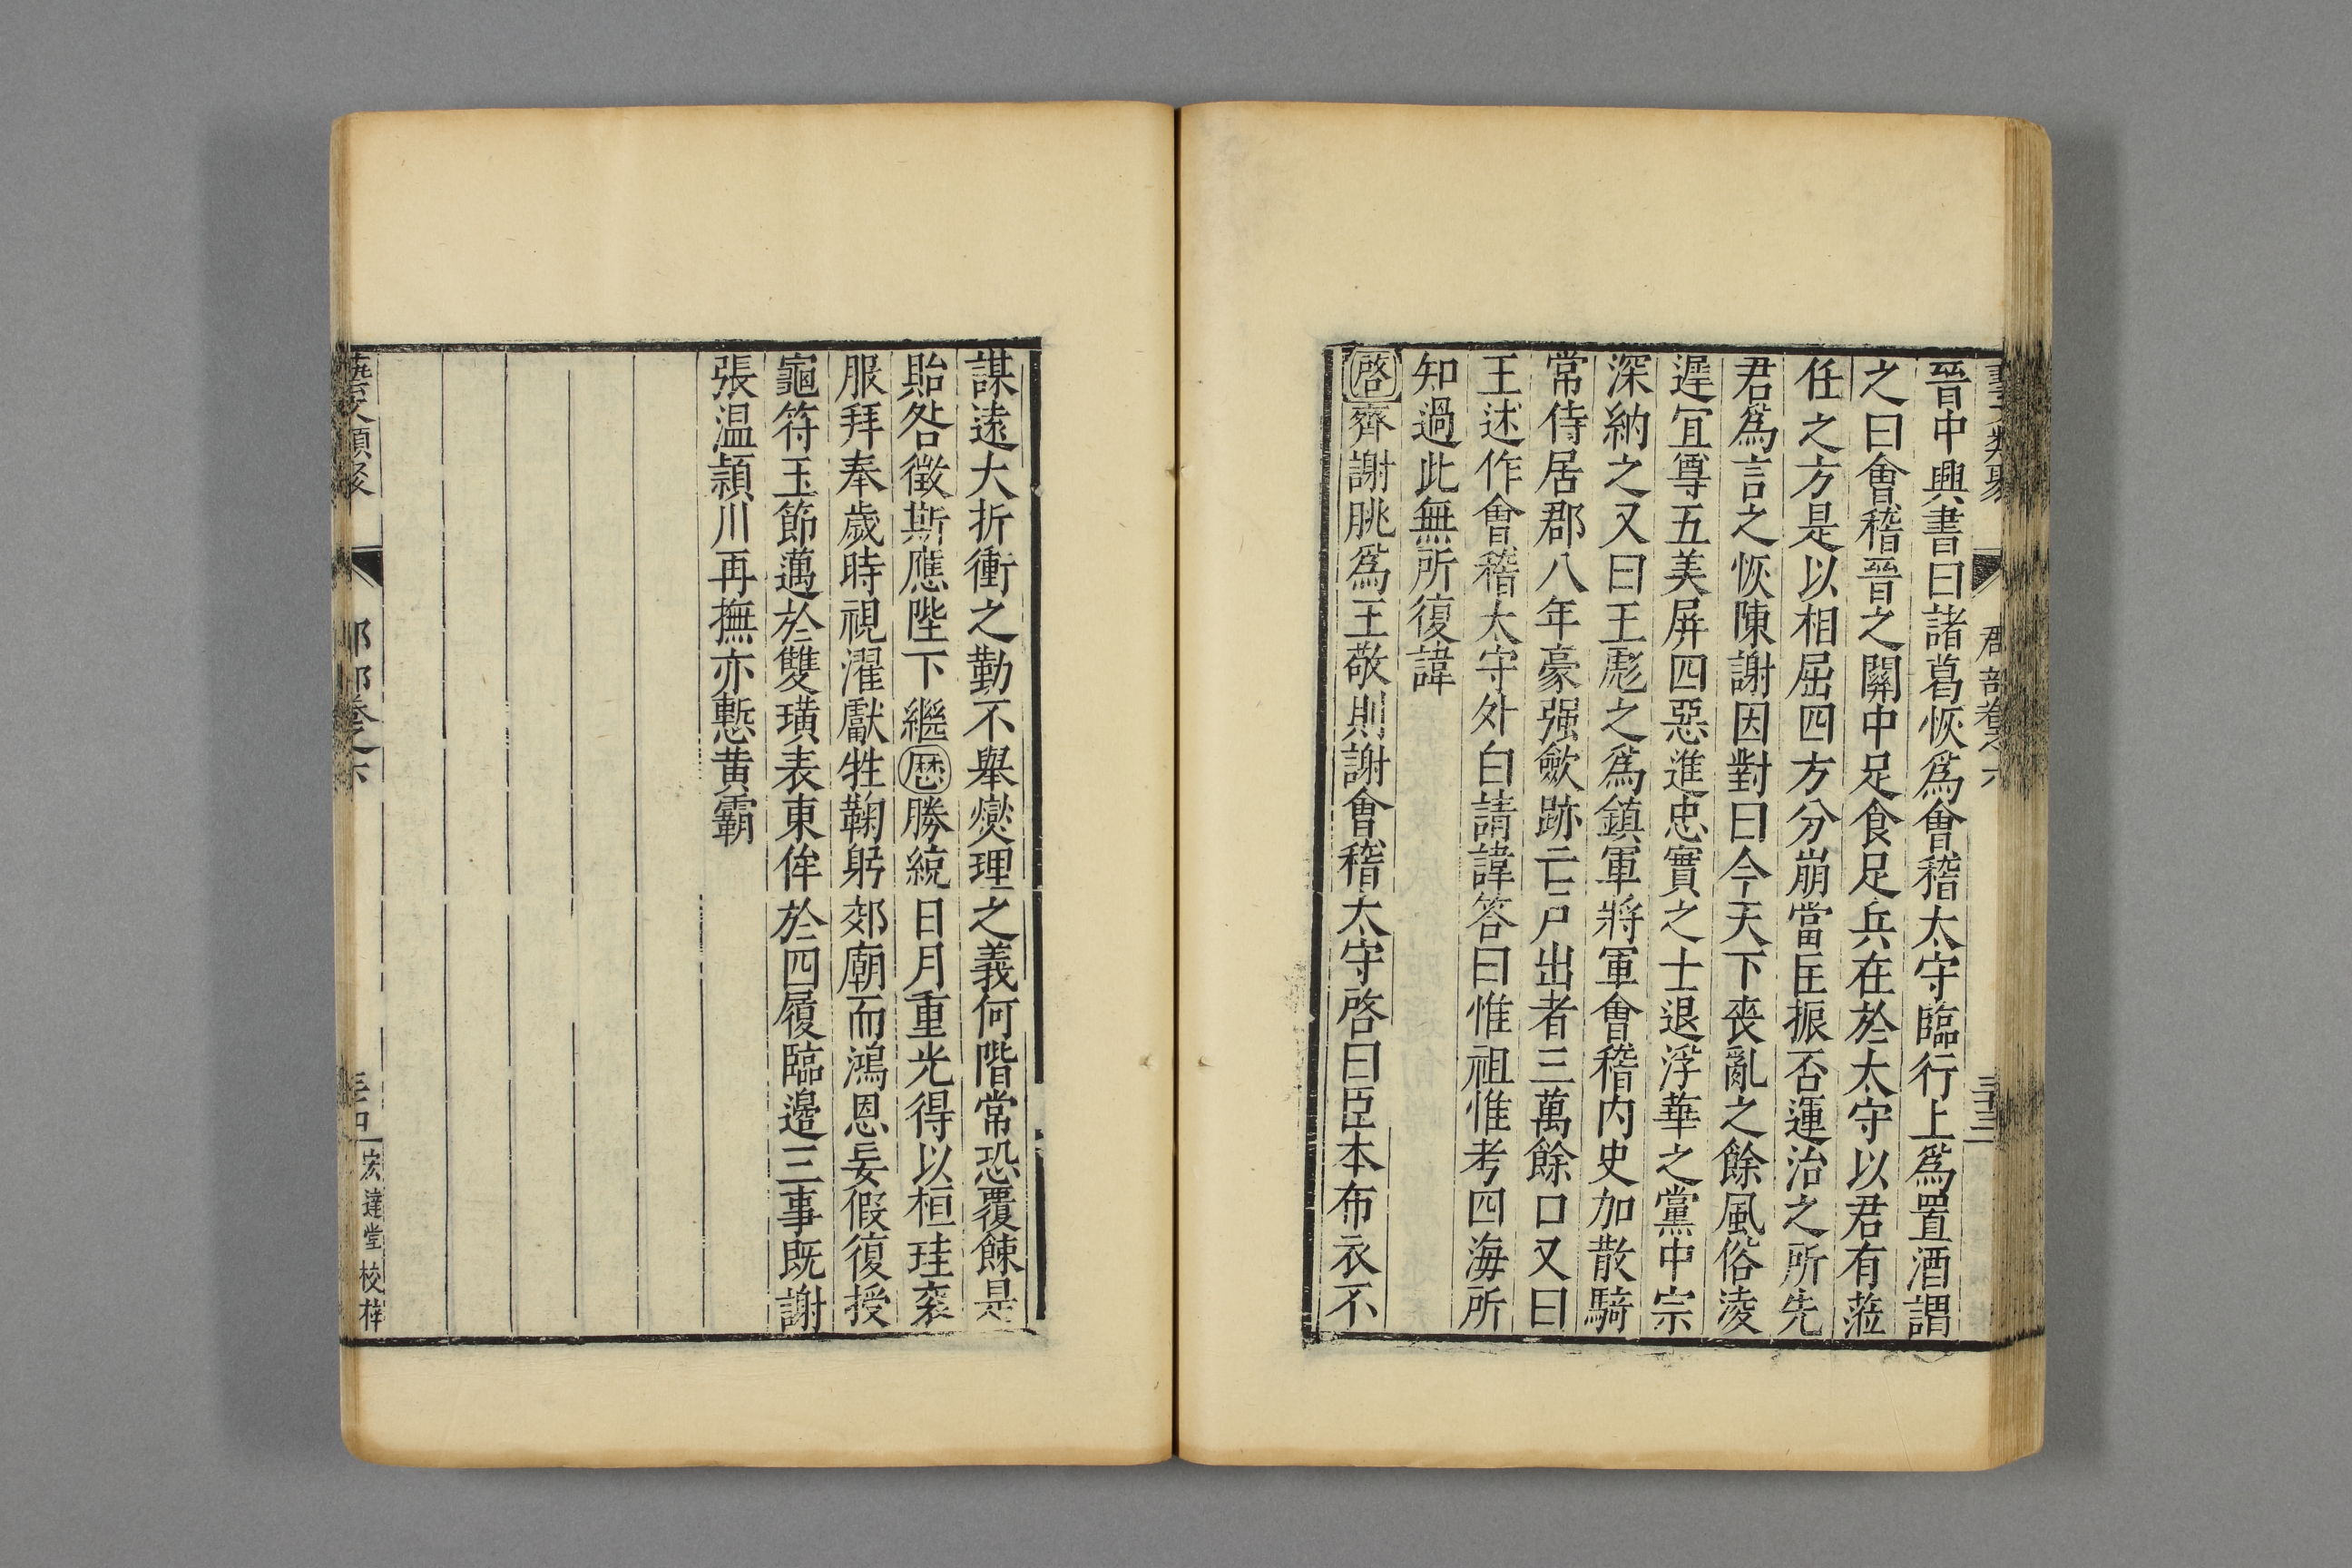 晉中興書曰諸葛恢爲會稽太守臨行上爲置酒謂
之曰會稽晉之關中足食足兵在於太守以君有蒞
任之方是以相屈四方分崩當匡振否運治之所先
君爲言之恢陳謝因對曰今天下喪亂之餘風俗淩
遲宜尊五美屏四惡進忠實之士退浮華之黨中宗
深納之又曰王彪之爲鎮軍將軍會稽内史加散騎
常侍居郡八年豪强歛跡亡戸出者三萬餘口又曰
王述作會稽太守外白請諱答曰惟祖惟考四海所
知過此無所復諱
啓齊謝朓爲王敬則謝會稽太守啓曰臣本布衣不
謀遠大折衝之勤不舉爕理之義何階常恐覆餗是
貽咎徵斯應陛下繼厯勝統日月重光得以桓珪衮
服拜奉歲時視濯獻牲鞠躬郊廟而鴻恩妄假復授
龜符玉節邁於雙璜表東侔於四履臨邊三事既謝
張温頴川再撫亦慙黄霸
藝文類聚
郡部卷之六
三十四
宏達堂校梓